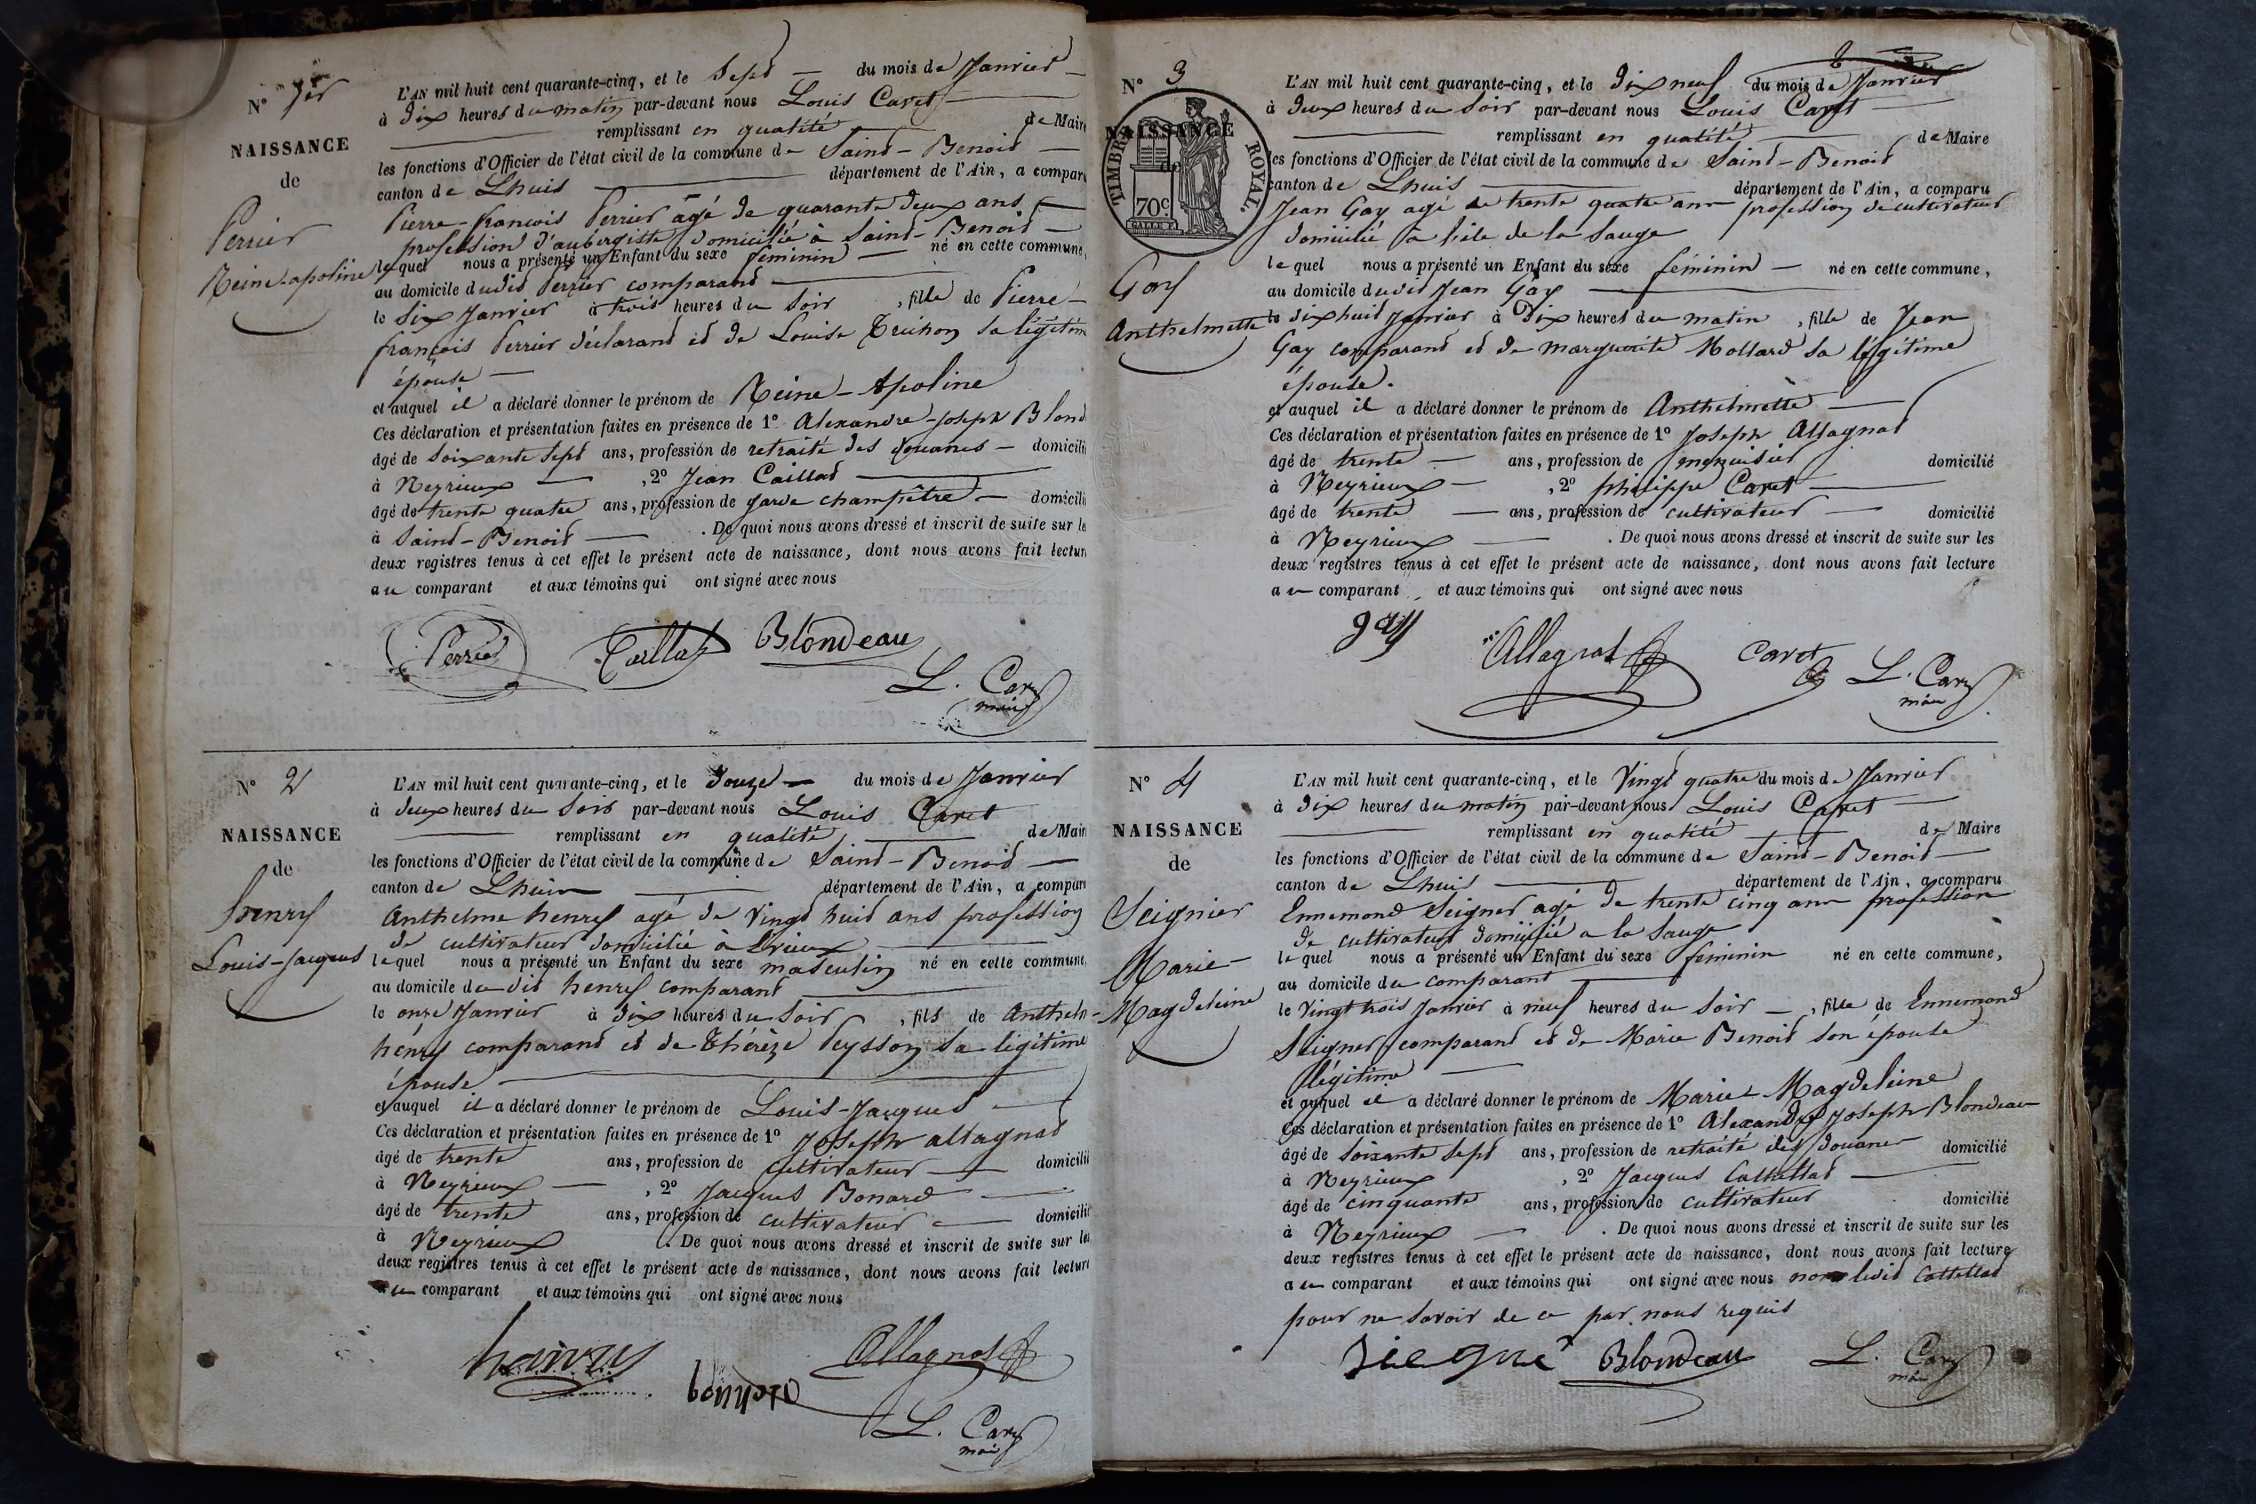 N° 1er
NAISSANCE
de
Perrier
Reine-apoline
L'AN mil huit cent quarante-cinq, et le Sept du mois de Janvier
à dix heures du matin par-devant nous Louis Caret
remplissant en qualité de Maire
les fonctions d'Officier de l'état civil de la commune de Saint-Benoit
canton de Lhuis département de l'Ain, a compar
Pierre-françois Perrier âgé de quarante deux ans
profession d'aubergiste domicilié à Saint-Benoit
lequel nous a présenté un Enfant du sexe feminin né en cette commune,
au domicile dudit Perrier comparand
le six Janvier à trois heures du soir, fille de Pierre-
françois Perrier déclarand et de Louise Truchon sa légitim
épouse
et auquel il a déclaré donner le prénom de Reine-Apoline
Ces déclaration et présentation faites en présence de 1° Alexandre-Joseph Blond
âgé de soixante sept ans, profession de retraité des douanes domicilié
à Neyrieux, 2° Jean Caillat
âgé de trente quatre ans, profession de garde champêtre domicilié
à Saint-Benoit. De quoi nous avons dressé et inscrit de suite sur le
deux registres tenus à cet effet le présent acte de naissance, dont nous avons fait lectur
au comparant et aux témoins qui ont signé avec nous
Perrier Caillat Blondeau
L. Caret
maire
N° 2
NAISSANCE
de
henry
Louis-Jacques
L'AN mil huit cent quarante-cinq, et le douze du mois de Janvier
à deux heures du soir par-devant nous Louis Caret
remplissant en qualité de Mair
les fonctions d'Officier de l'état civil de la commune de Saint-Benoit
canton de Lhuis département de l'Ain, a compar
Anthelme henry agé de vingt huit ans profession
de cultivateur domicilié à
lequel nous a présenté un Enfant du sexe masculin né en cette commune,
au domicile du dit henry comparant
le onze Janvier à dix heures du soir, fils de Anthelm-
henry comparand et de Thérèze Peysson sa légitime
épouse
et auquel il a déclaré donner le prénom de Louis-Jacques
Ces déclaration et présentation faites en présence de 1° Joseph allagnat
âgé de trente ans, profession de cultivateur domicilié
à Neyrieux, 2° Jacques Bonard
âgé de trente ans, profession de cultivateur domicilié
à Neyrieux. De quoi nous avons dressé et inscrit de suite sur les
deux registres tenus à cet effet le présent acte de naissance, dont nous avons fait lecture
au comparant et aux témoins qui ont signé avec nous
Allagnat
L. Caret
maire
N° 3
NAISSANCE
de
TIMBRE ROYAL.
70c
Gay
Anthelmette
L'AN mil huit cent quarante-cinq, et le dix neuf du mois de Janvier
à deux heures du soir par-devant nous Louis Caret
remplissant en qualité de Maire
les fonctions d'Officier de l'état civil de la commune de Saint-Benoit
canton de Lhuis département de l'Ain, a comparu
Jean Gay agé de trente quatre ans profession de cultivateur
domicilié à l'ile de la Sauge
lequel nous a présenté un Enfant du sexe féminin né en cette commune,
au domicile dudit Jean Gay
le dix huit Janvier à dix heures du matin, fille de Jean
Gay comparand et de marguerite Mollard sa légitime
épouse.
et auquel il a déclaré donner le prénom de Anthelmette
Ces déclaration et présentation faites en présence de 1° Joseph Allagnat
âgé de trente ans, profession de menuisier domicilié
à Neyrieux, 2° philippe Caret
âgé de trente ans, profession de cultivateur domicilié
à Neyrieux. De quoi nous avons dressé et inscrit de suite sur les
deux registres tenus à cet effet le présent acte de naissance, dont nous avons fait lecture
au comparant et aux témoins qui ont signé avec nous
gay Allagnat Caret L. Caret
maire
N° 4
NAISSANCE
de
Seignier
Marie-
Magdeleine
L'AN mil huit cent quarante-cinq, et le vingt quatre du mois de Janvier
à dix heures du matin par-devant nous Louis Caret
remplissant en qualité de Maire
les fonctions d'Officier de l'état civil de la commune de Saint-Benoit
canton de Lhuis département de l'Ain, a comparu
Ennemond Seigner agé de trente cinq ans profession
de cultivateur domicilié a la Sauge
lequel nous a présenté un Enfant du sexe feminin né en cette commune,
au domicile du comparant
le vingt trois Janvier à neuf heures du soir, fille de Ennemond
Seigner comparand et de Marie Benoit son épouse
légitime
et auquel il a déclaré donner le prénom de Marie Magdeleine
Ces déclaration et présentation faites en présence de 1° Alexandre Joseph Blondeau
âgé de soixante sept ans, profession de retraité des douanes domicilié
à Neyrieux, 2° Jacques Cattellad
âgé de cinquante ans, profession de cultivateur domicilié
à Neyrieux. De quoi nous avons dressé et inscrit de suite sur les
deux registres tenus à cet effet le présent acte de naissance, dont nous avons fait lecture
au comparant et aux témoins qui ont signé avec nous non ledit Cattellad
pour ne savoir de ce par nous requis
Blondeau L. Caret
maire